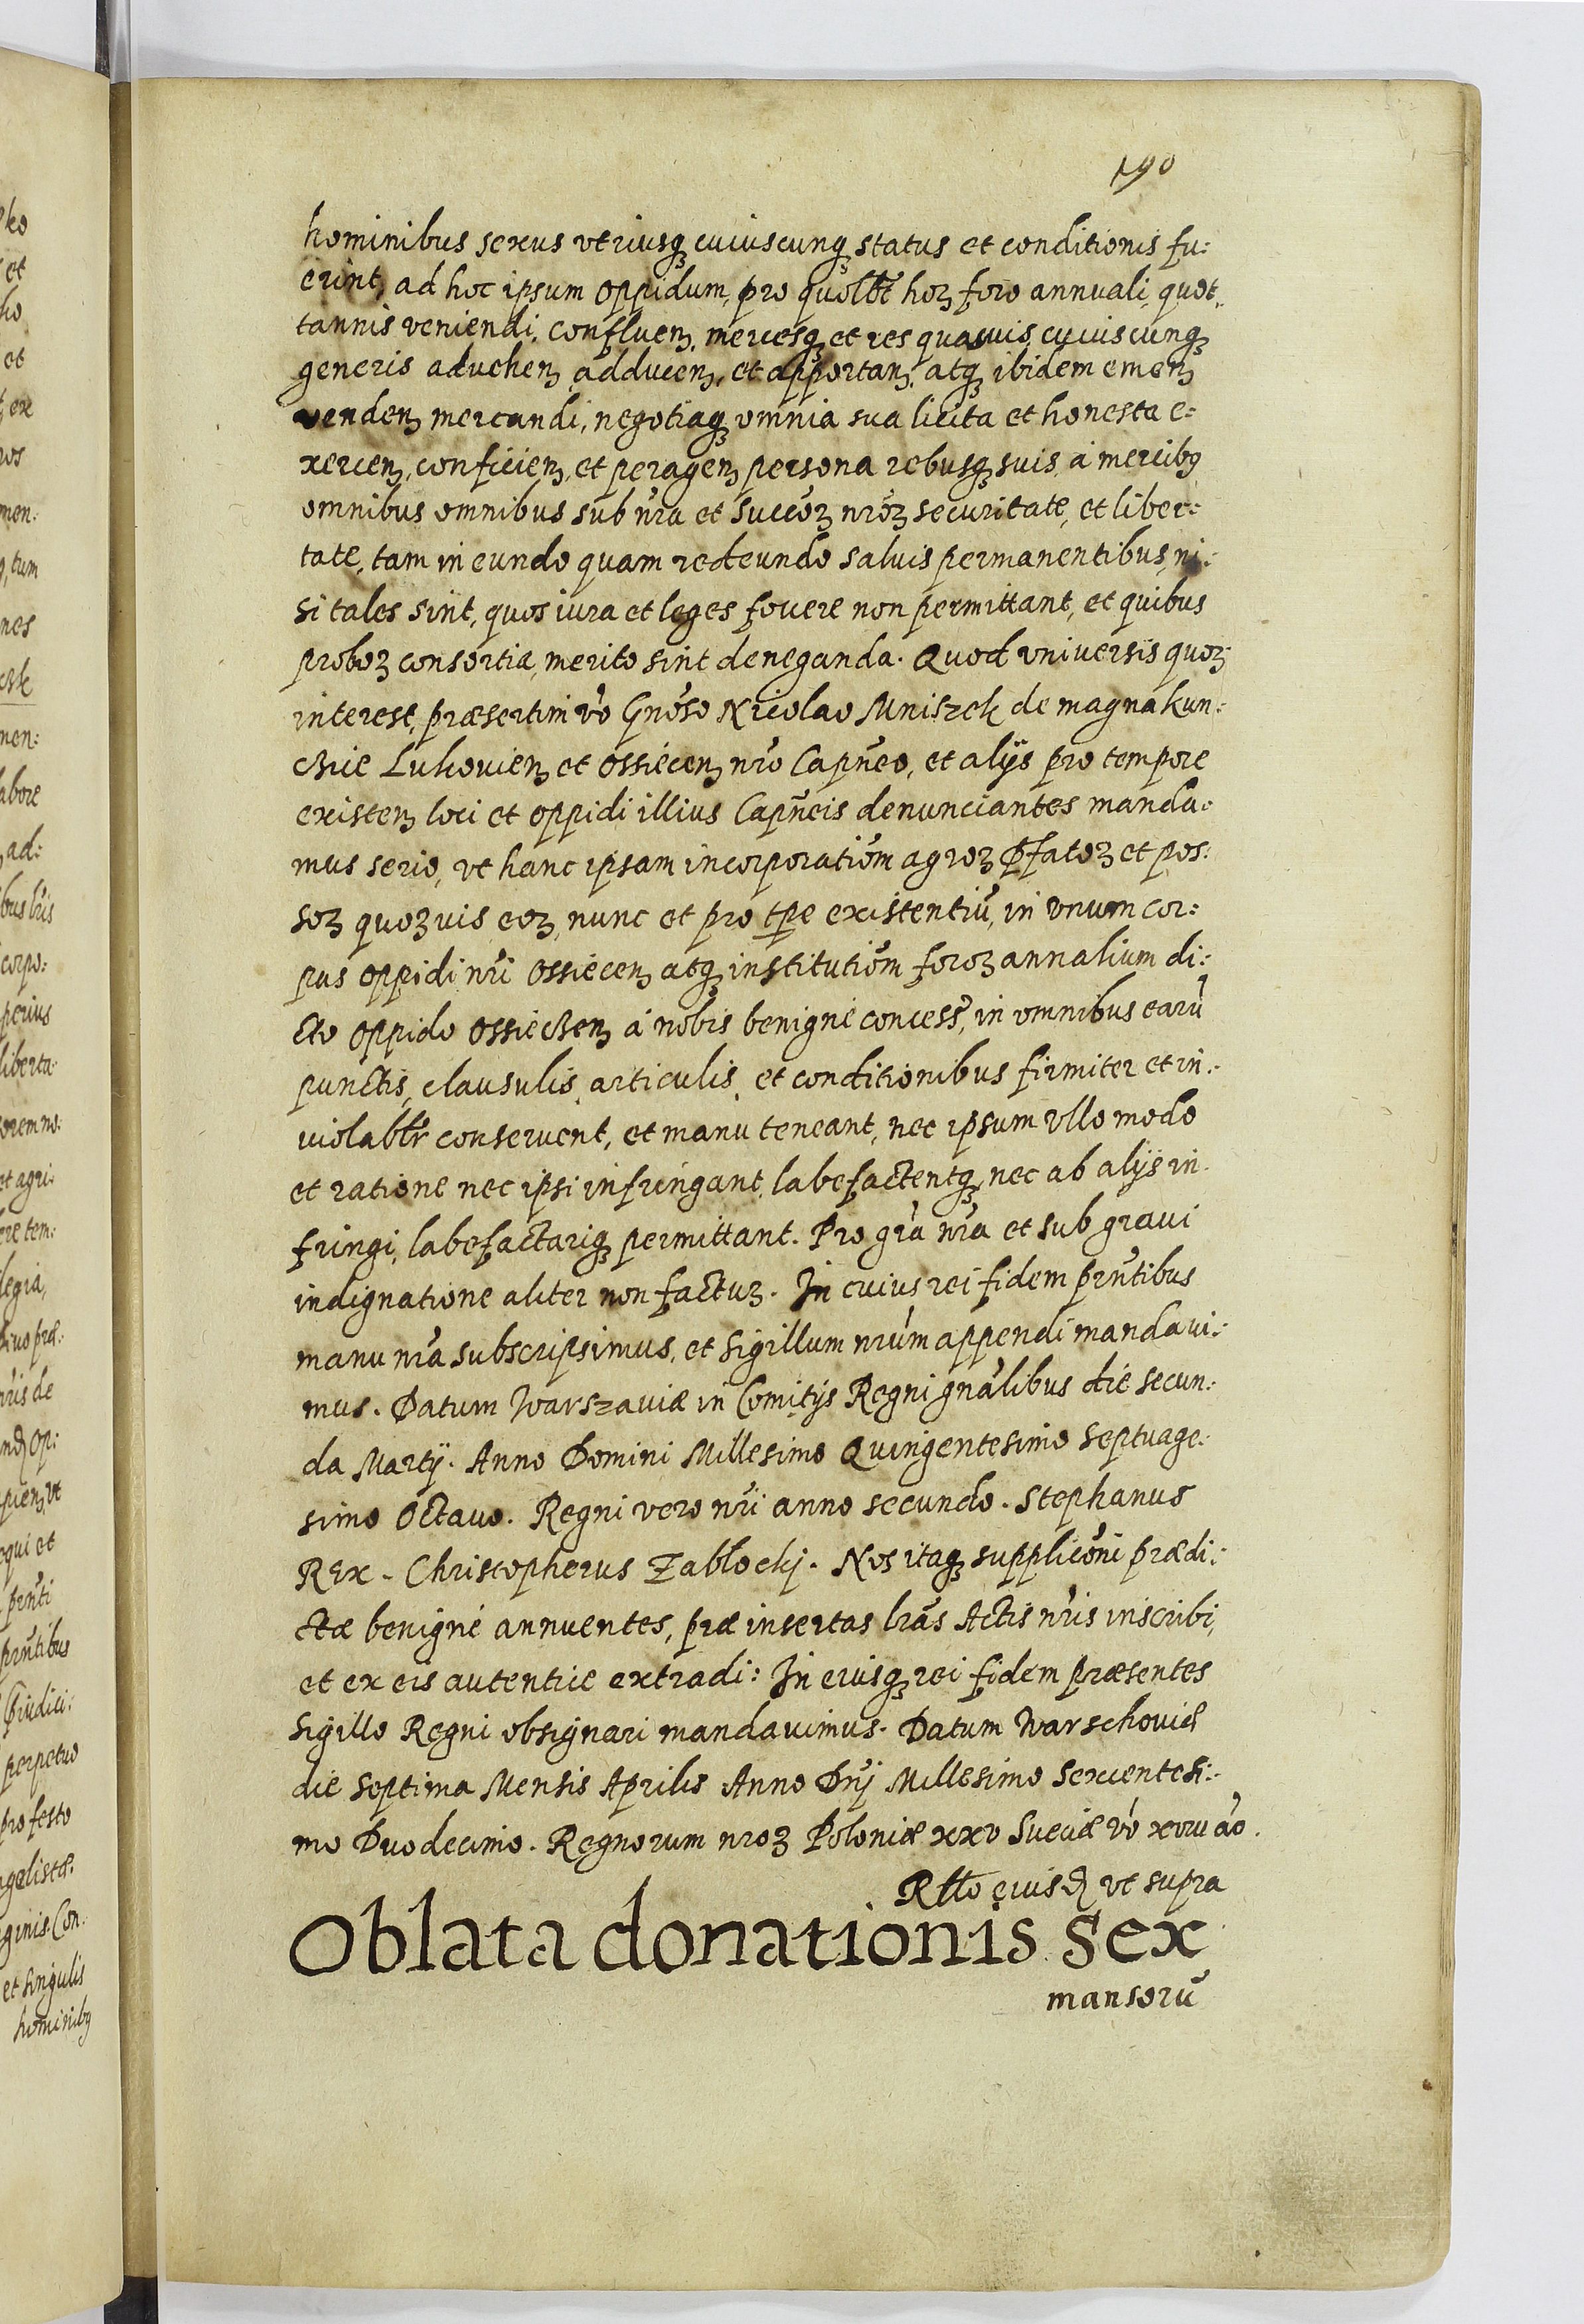 190
hominibus sexus vtriusqꝫ cuiuscunqꝫ status et conditionis fu:
erint, ad hoc ipsum oppidum, pro quolbt hoꝝ foro annuali, quot,
tannis veniendi, confluenꝫ, mercesqꝫ et res quasuis cuiuscunqꝫ
generis aduehenꝫ adducenꝫ, et apportanꝫ, atqꝫ ibidem emenꝫ
vendenꝫ mercandi, negotiaqꝫ omnia sua licita et honesta e:
xercenꝫ, conficienꝫ, et peragenꝫ persona rebusqꝫ suis, à mercibꝯ
omnibus omnibus sub nr̃a et succõꝝ nrõꝝ securitate, et liber:
tate, tam in eundo quam redeundo saluis permanentibus, ni:
si tales sint, quos iura et leges fouere non permittant, et quibus
proboꝝ consortia, merito sint deneganda. Quod vniversis quoꝝ
interest, præsertim vò Gnõso Nicolao Mniszek de magna kun:
czicе Lukouienꝫ et Ossiecenꝫ nrõ Capñeo, et alÿs pro tempore
existenꝫ loci et oppidi illius Capñeis denunciantes manda:
mus serio, vt hanc ipsam incorporatiõm agroꝝ p̱fatoꝝ et pos:
soꝝ quoꝝuis eoꝝ, nunc et pro tp̱e existentiũ, in vnum cor:
pus oppidi nr̃i Ossiecenꝫ atqꝫ institutiõm foroꝝ annalium di:
cto oppido Ossieczenꝫ à nobis benignè concess̃, in omnibus earũ
punctis, clausulis, articulis, et conditionibus firmiter et in:
violabtr̃ conseruent, et manu teneant, nec ipsum vllo modo
et ratione nec ipsi infringant, labefactentqꝫ, nec ab alÿs in.
fringi, labefactariqꝫ permittant. Pro grã nr̃a et sub graui
indignatione aliter non factuꝝ. In cuius rei fidem prñtibus
manu nr̃a subscripsimus, et sigillum nrũm appendi mandaui:
mus. Datum Warszauiæ in Comitÿs Regni gnãlibus die secun:
da Martÿ. Anno Domini Millesimo Quingentesimo septuage:
simo Octauo. Regni vero nr̃i anno secundo. Stephanus
REx. Christopherus Zablockj. Nos itaqꝫ suppliciõni prædi:
ctæ benignè annuentes, præ insertas lrãs Actis nr̃is inscribi,
et ex eis autenticè extradi: In eiusqꝫ rei fidem præsentes
sigillo Regni obsignari mandauimus. Datum Warschouiæ
die septima Mensis Aprilis Anno Dñj Millesimo sexcentesi:
mo Duodecimo. Regnorum nroꝝ Poloniæ xxv Sueciæ vò xviiii ão.
Rtto eiusđ vt supra
Oblata donationis sex
mansorũ